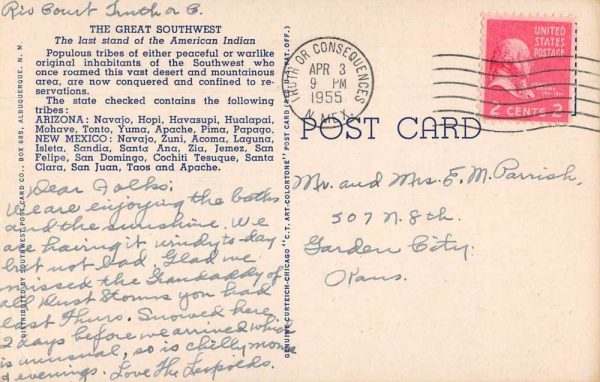 Rio Court Truth or C.
THE GREAT SOUTHWEST
The last stand of the American Indian
Populous tribes of either peaceful or warlike
original inhabitants of the Southwest who
once roamed this vast desert and mountainous
area, are now conquered and confined to re-
servations.
The state checked contains the following
tribes:
ARIZONA: Navajo, Hopi, Havasupi, Hualapai,
Mohave, Tonto, Yuma, Apache, Pima, Papago.
NEW MEXICO: Navajo, Zuni, Acoma, Laguna,
Isleta, Sandia, Santa Ana, Zia, Jemez, San
Felipe, San Domingo, Cochiti Tesuque, Santa
Clara, San Juan, Taos and Apache.
Dear Folks:
We are enjoying the baths
and the sunshine. We
are having it windy to-day
but not bad. Glad we
missed the Grandaddy of
all Dust Storms you had
last Thurs. Snowed here
2 days before we arrived which
is unusual, so is chilly morn
& evenings. Love The
DISTRIBUTED BY SOUTHWEST POST CARD CO., BOX 685, ALBUQUERQUE, N. M.
GENUINE CURTEICH-CHICAGO "C.T. ART-COLORTONE" POST CARD (REG. U.S. PAT. OFF.)
TRUTH OR CONSEQUENCES
APR 3
9 PM
1955
N. MEX.
UNITED
STATES
POSTAGE
2 CENTS 2
POST CARD
Mr. and Mrs. E. M. Parrish,
507 N. 8th.
Garden City.
Kans.